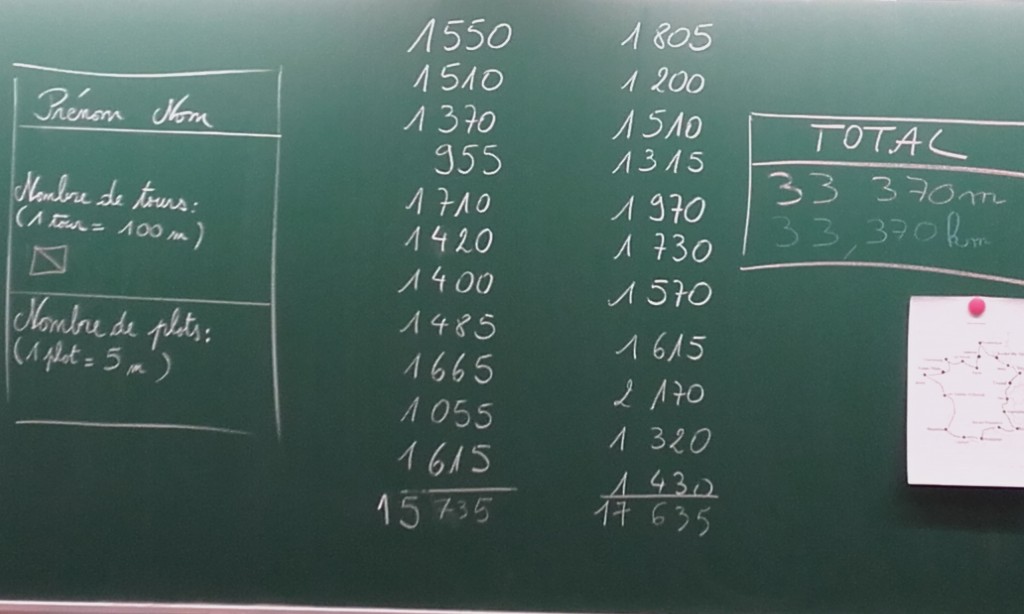 Prénom Nom
Nombre de tours:
(1 tour = 100 m)
Nombre de plots:
(1 plot = 5 m)
1550
1510
1370
955
1710
1420
1400
1485
1665
1055
1615
15 735
1 805
1 200
1 510
1 315
1 970
1 730
1 570
1 615
2 170
1 320
1 430
17 635
TOTAL
33 370m
33,370km